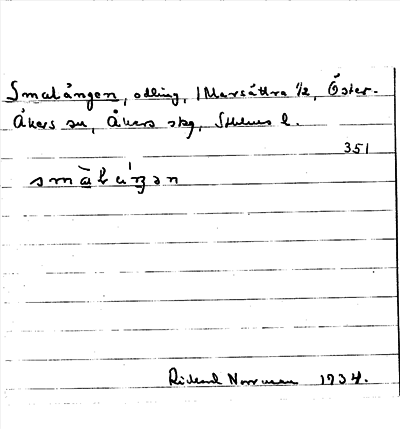 Smalången, odling, 1 Marsättra 1/2, Öster-
Åkers sn, Åkers skg, Sthlms l.
351
smàlaŋ́ən
Rickard Norrman 1934.